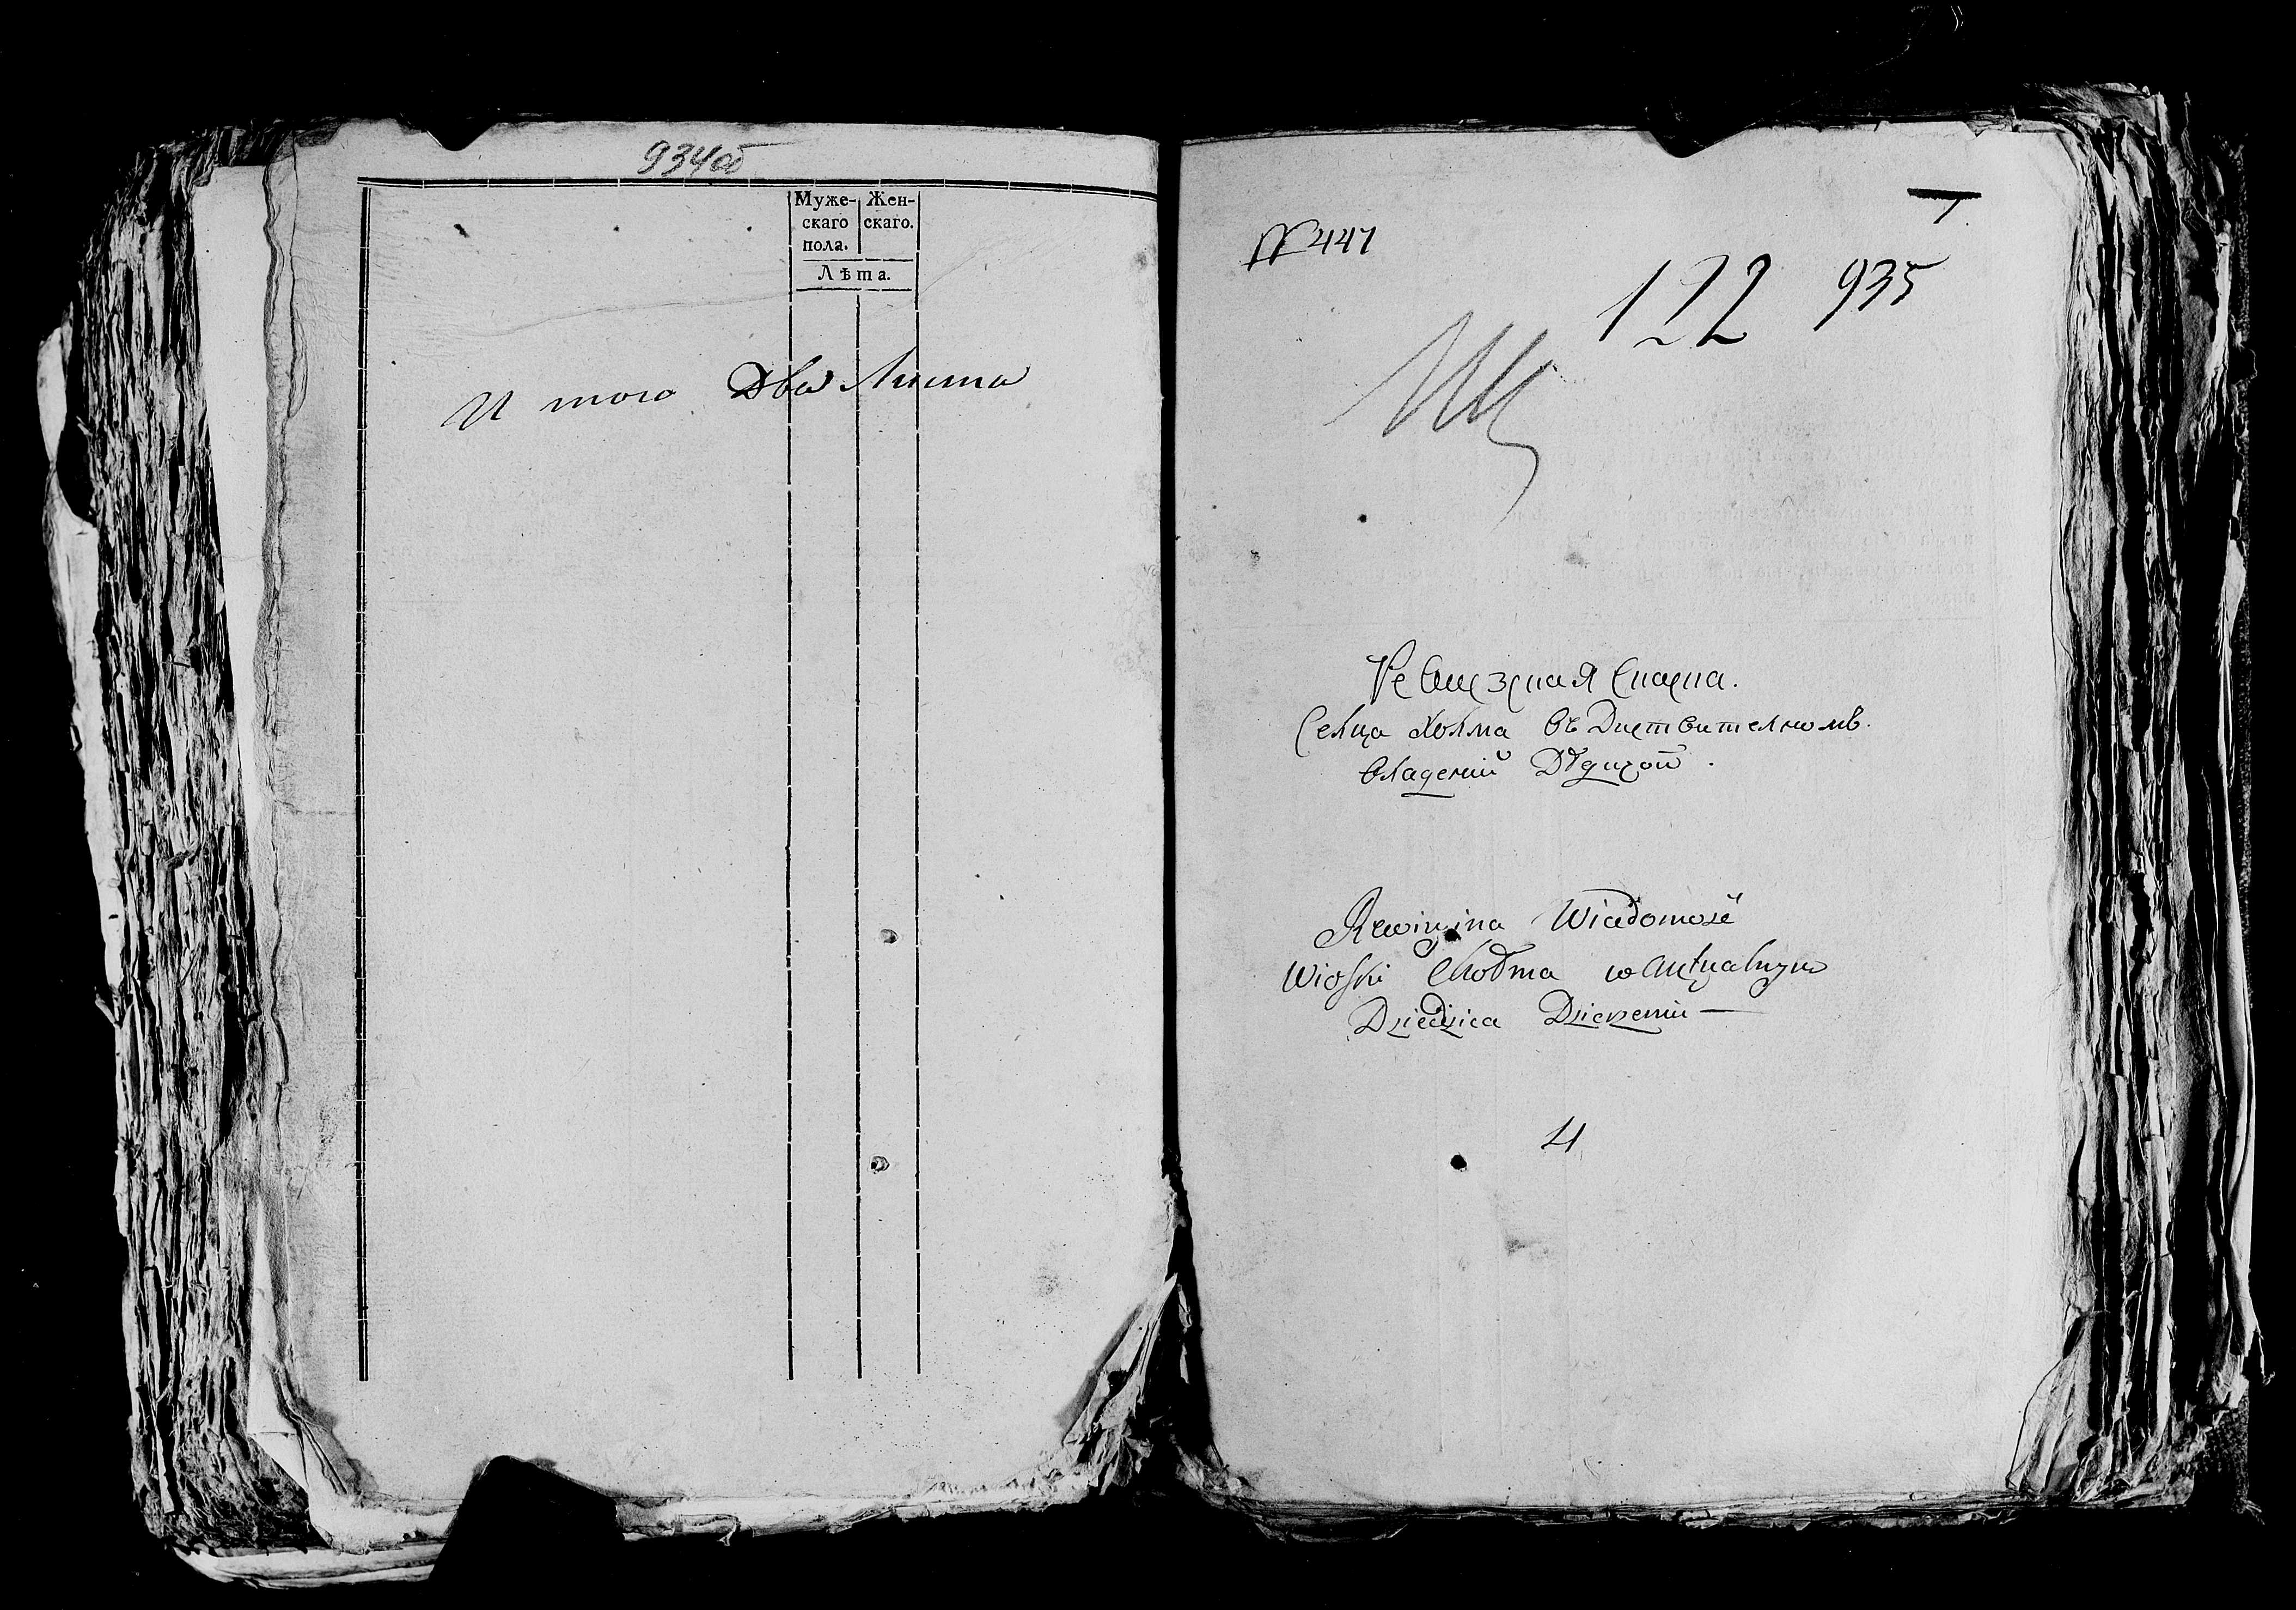 934об
Муже- Жен-
скаго скаго.
пола.
Лѣта.
И того Два Листа
1
№ 447
122 935
Ревизская Сказка.
Селца Холма въ Диствителномъ
владений Дѣдизой.
Rewizyina Wiadomość
Wioski Chołma w Aktualnym
Dziedzica Dzierzeniu —
4